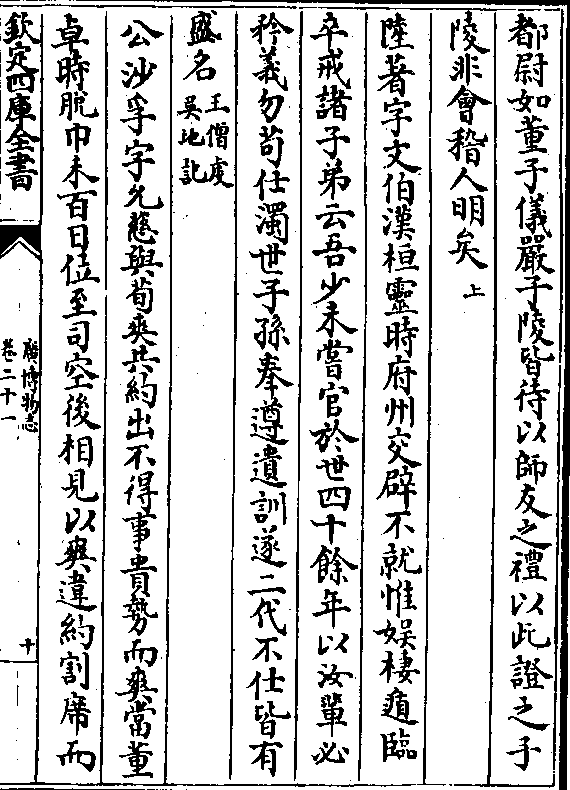 都尉如董子儀嚴子陵皆待以師友之禮以此證之子
陵非會稽人明矣上
陸著字文伯漢桓靈時府州交辟不就惟娱棲遁臨
卒戒諸子弟云吾少未嘗官於世四十餘年以汝輩必
矜義勿苟仕濁世子孫奉遵遺訓遂二代不仕皆有
盛名王僧虔吳地記
公沙孚字允慈與荀爽共約出不得事貴勢而爽當董
卓時脱巾未百日位至司空後相見以爽違約割席而
欽定四庫全書
廣博物志
卷二十一
十